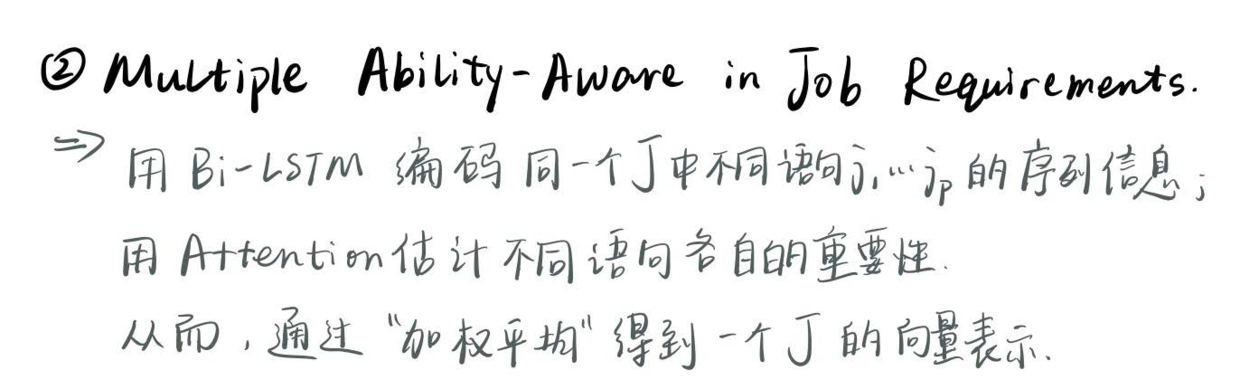 ② Multiple Ability-Aware in Job Requirements.
⇒ 用 Bi-LSTM 编码 同一个J中不同语句j₁…jₚ的序列信息;
用 Attention估计不同语句各自的重要性.
从而,通过“加权平均”得到一个J的向量表示.